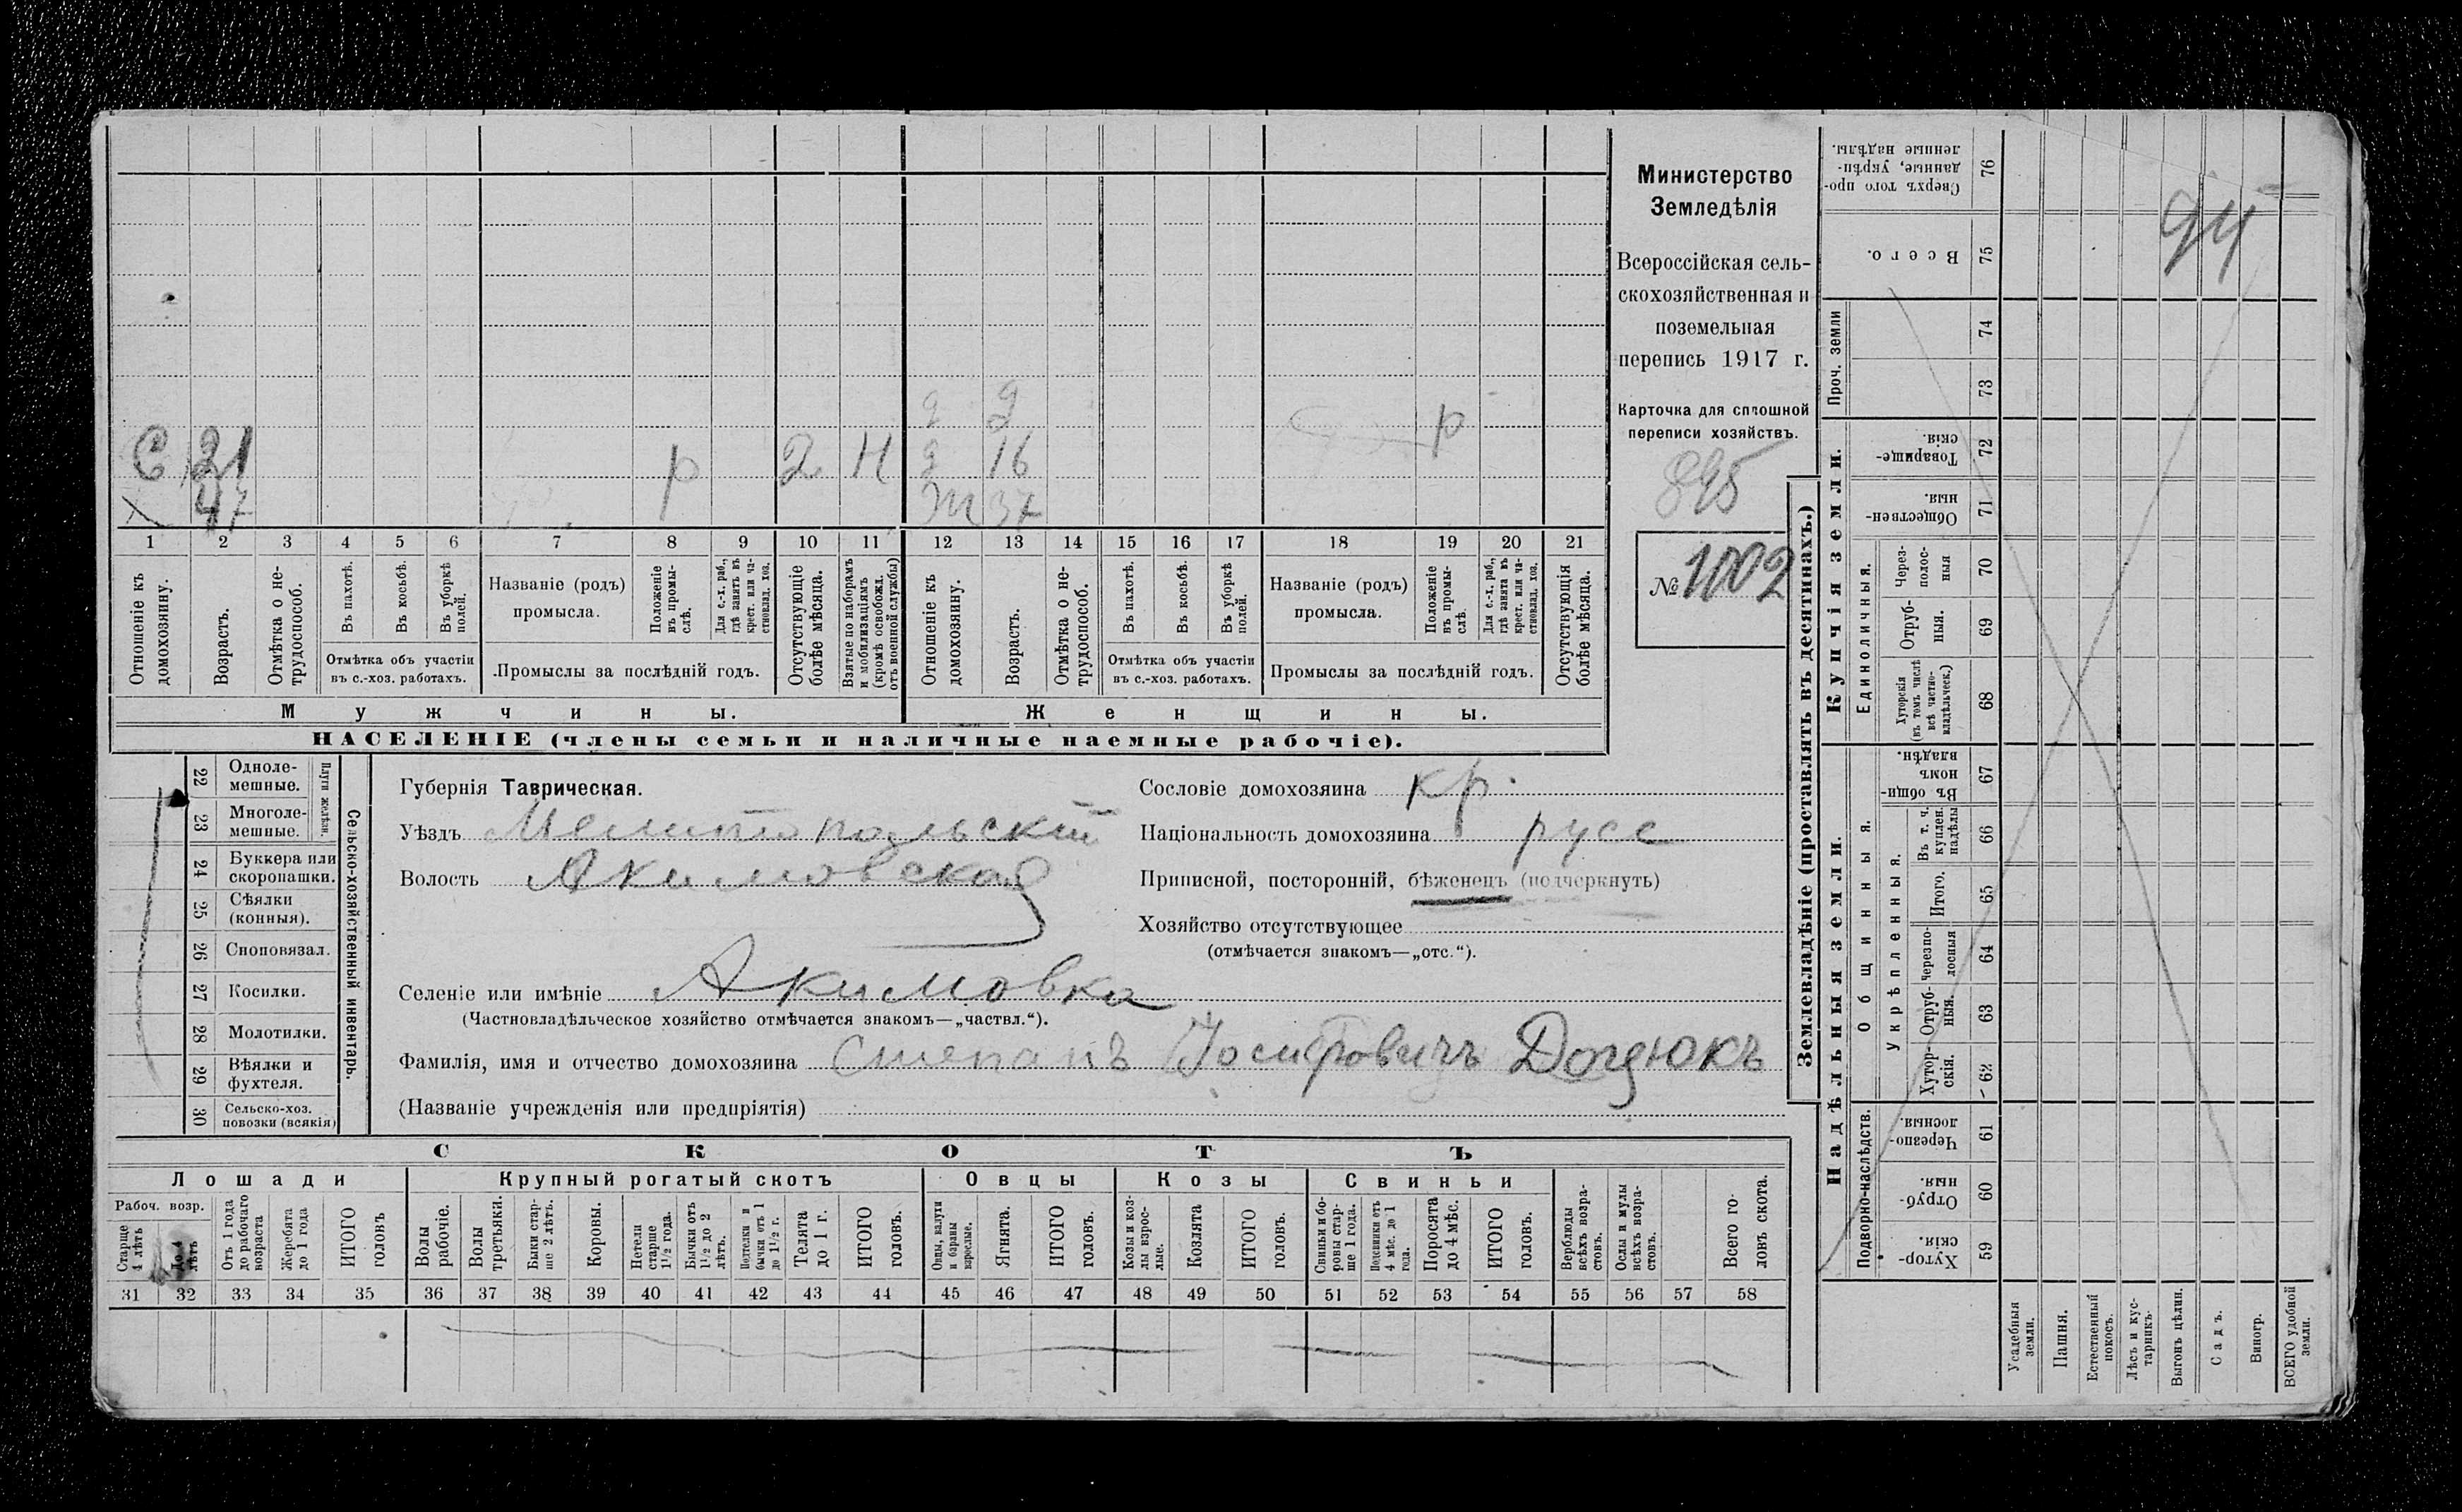 94
Министерство
Земледѣлія
Всероссійская сель-
скохозяйственная и
поземельная
перепись 1917 г.
Карточка для сплошной
переписи хозяйствъ.
895
№ 1002
д 9 р
С 21 р 2 Н д 16
X 47 Ж 37
1 2 3 4 5 6 7 8 9 10 11 12 13 14 15 16 17 18 19 20 21
Отношеніе къ домохозяину.
Возрастъ.
Отмѣтка о не-трудоспособ.
Въ пахотѣ.
Въ косьбѣ.
Въ уборкѣ полей.
Отмѣтка объ участіи
въ с.-хоз. работахъ.
Названіе (родъ)
промысла.
Положеніе въ промы-слѣ.
Для с.-х. раб., гдѣ занятъ въ крест. или ча-стновлад. хоз.
Промыслы за послѣдній годъ.
Отсутствующіе болѣе мѣсяца.
Взятые по наборамъ и мобилизаціямъ (кромѣ освобожд. отъ военной службы)
Отношеніе къ домохозяину.
Возрастъ.
Отмѣтка о не-трудоспособ.
Въ пахотѣ.
Въ косьбѣ.
Въ уборкѣ полей.
Отмѣтка объ участіи
въ с.-хоз. работахъ.
Названіе (родъ)
промысла.
Положеніе въ промы-слѣ.
Для с.-х. раб., гдѣ занята въ крест. или ча-стновлад. хоз.
Промыслы за послѣдній годъ.
Отсутствующія болѣе мѣсяца.
Мужчины. Женщины.
НАСЕЛЕНІЕ (члены семьи и наличные наемные рабочіе).
22 Одноле-мешные.
23 Многоле-мешные.
Плуги желѣзн.
24 Буккера или скоропашки.
25 Сѣялки (конныя).
26 Сноповязал.
27 Косилки.
28 Молотилки.
29 Вѣялки и фухтеля.
30 Сельско-хоз. повозки (всякія)
Сельско-хозяйственный инвентарь.
Губернія Таврическая.
Уѣздъ Мелитопольскій
Волость Акимовская
Сословіе домохозяина кр.
Національность домохозяина русс
Приписной, посторонній, бѣженецъ (подчеркнуть)
Хозяйство отсутствующее
(отмѣчается знакомъ—„отс.“).
Селеніе или имѣніе Акимовка
(Частновладѣльческое хозяйство отмѣчается знакомъ—„частвл.“).
Фамилія, имя и отчество домохозяина Степанъ Іосифовичъ
(Названіе учрежденія или предпріятія)
СКОТЪ
Лошади Крупный рогатый скотъ Овцы Козы Свиньи
Рабоч. возр.
Старше 4 лѣтъ
До 4 лѣтъ
Отъ 1 года до рабочаго возраста
Жеребята до 1 года
ИТОГО головъ
Волы рабочіе.
Волы третьяки.
Быки стар-ше 2 лѣтъ.
Коровы.
Нетели старше 1½ года.
Бычки отъ 1½ до 2 лѣтъ.
Полтелки и бычки отъ 1 до 1½ г.
Телята до 1 г.
ИТОГО головъ.
Овцы, валухи и бараны взрослые.
Ягнята.
ИТОГО головъ.
Козы и коз-лы взрос-лые.
Козлята
ИТОГО головъ.
Свиньи и бо-ровы стар-ше 1 года.
Подсвинки отъ 4 мѣс. до 1 года.
Поросята до 4 мѣс.
ИТОГО головъ.
Верблюды всѣхъ возра-стовъ.
Ослы и мулы всѣхъ возра-стовъ.
Всего го-ловъ скота.
31 32 33 34 35 36 37 38 39 40 41 42 43 44 45 46 47 48 49 50 51 52 53 54 55 56 57 58
Землевладѣніе (проставлять въ десятинахъ.)
Купчія земли.
Надѣльныя земли.
76 Сверхъ того про-данные, укрѣп-ленные надѣлы.
75 Всего.
Проч. земли
74
73
72 Товарище-скія.
71 Обществен-ныя.
Единоличныя.
70 Через-полос-ныя
69 Отруб-ныя.
68 Хуторскія (въ томъ числѣ всѣ частно-владѣльческ.)
Общинныя.
67 Въ общи-номъ владѣн.
Укрѣпленныя.
66 Въ т. ч. куплен. надѣлы
65 Итого.
64 Черезпо-лосныя
63 Отруб-ныя.
62 Хутор-скія.
Подворно-наслѣдств.
61 Черезпо-лосныя.
60 Отруб-ныя.
59 Хутор-скія.
Усадебныя земли.
Пашня.
Естественный покосъ.
Лѣсъ и кус-тарникъ.
Выгонъ цѣлин.
Садъ.
Виногр.
ВСЕГО удобной земли.